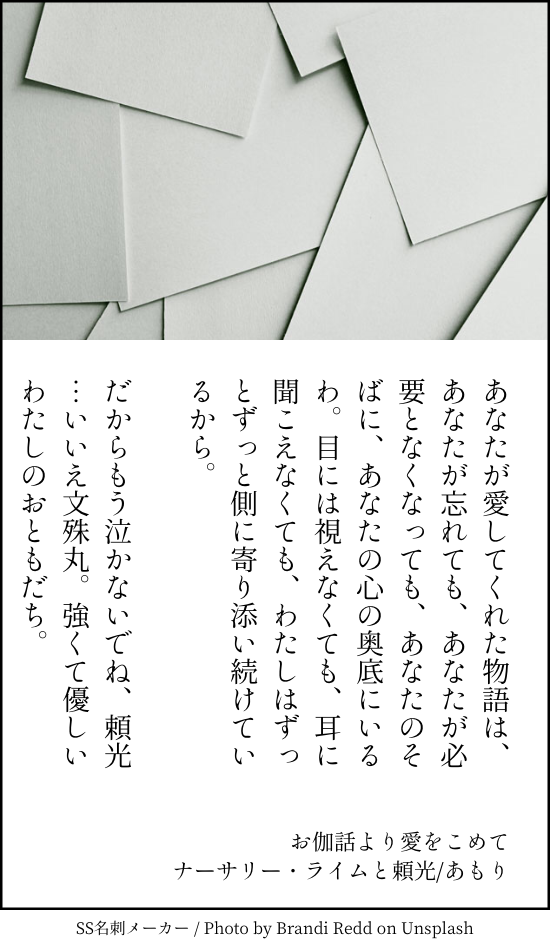 あなたが愛してくれた物語は、
あなたが忘れても、あなたが必
要となくなっても、あなたのそ
ばに、あなたの心の奥底にいる
わ。目には視えなくても、耳に
聞こえなくても、わたしはずっ
とずっと側に寄り添い続けてい
るから。
だからもう泣かないでね、頼光
…いいえ文殊丸。強くて優しい
わたしのおともだち。
お伽話より愛をこめて
ナーサリー・ライムと頼光/あもり
SS名刺メーカー / Photo by Brandi Redd on Unsplash